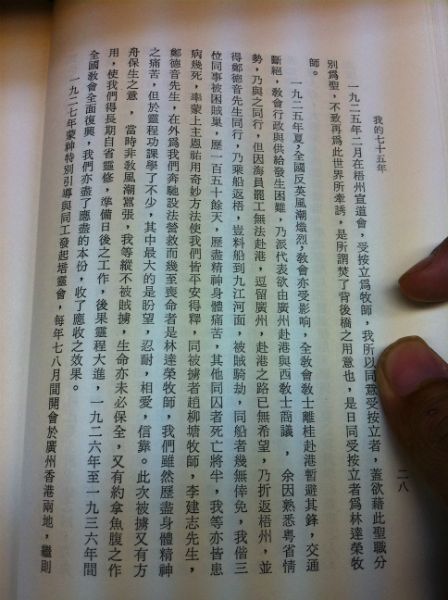 我的七十五年
二八
一九二五年二月在梧州宣道會，受按立爲牧師，我所以同意受按立者，蓋欲藉此聖職分
別爲聖，不致再爲此世界所牽誘，是所謂焚了背後橋之用意也，是日同受按立者爲林達榮牧
師。
一九二五年夏，全國反英風潮熾烈，敎會亦受影响，全敎會敎士離桂赴港暫避其鋒，交通
斷絕，敎會行政與供給發生困難，乃派代表欲由廣州赴港與西敎士商議，余因熟悉粤省情
勢，乃與之同行，但因海員罷工無法赴港，逗留廣州，赴港之路已無希望，乃折返梧州，並
得鄭德音先生同行，乃乘船返梧，豈料船到九江河面，被賊騎劫，同船者幾無倖免，我偕三
位同事被困賊巢，歷一百五十餘天，歷盡精神身體痛苦，其他同囚者死亡將牛，我等亦皆患
病幾死，率蒙上主恩祐用奇妙方法使我們皆平安得釋，同被擄者趙柳塘牧師，李建志先生，
鄭德音先生，在外爲我們奔馳設法營救而幾至喪命者是林達榮牧師，我們雖然歷盡身體精神
之痛苦，但於靈程功課學了不少，其中最大的是盼望，忍耐，相愛，信靠。此次被擄又有方
舟保生之意，當時非敎風潮囂張，我等縱不被賊擄，生命亦未必保全，又有約拿魚腹之作
用，使我們得長期自省靈修，準備日後之工作，後果靈程大進，一九二六年至一九三六年間
全國敎會全面復興，我們亦盡了應盡的本份，收了應收之效果。
一九二七年蒙神特別引導與同工發起培靈會，每年七八月間開會於廣州香港兩地，繼則